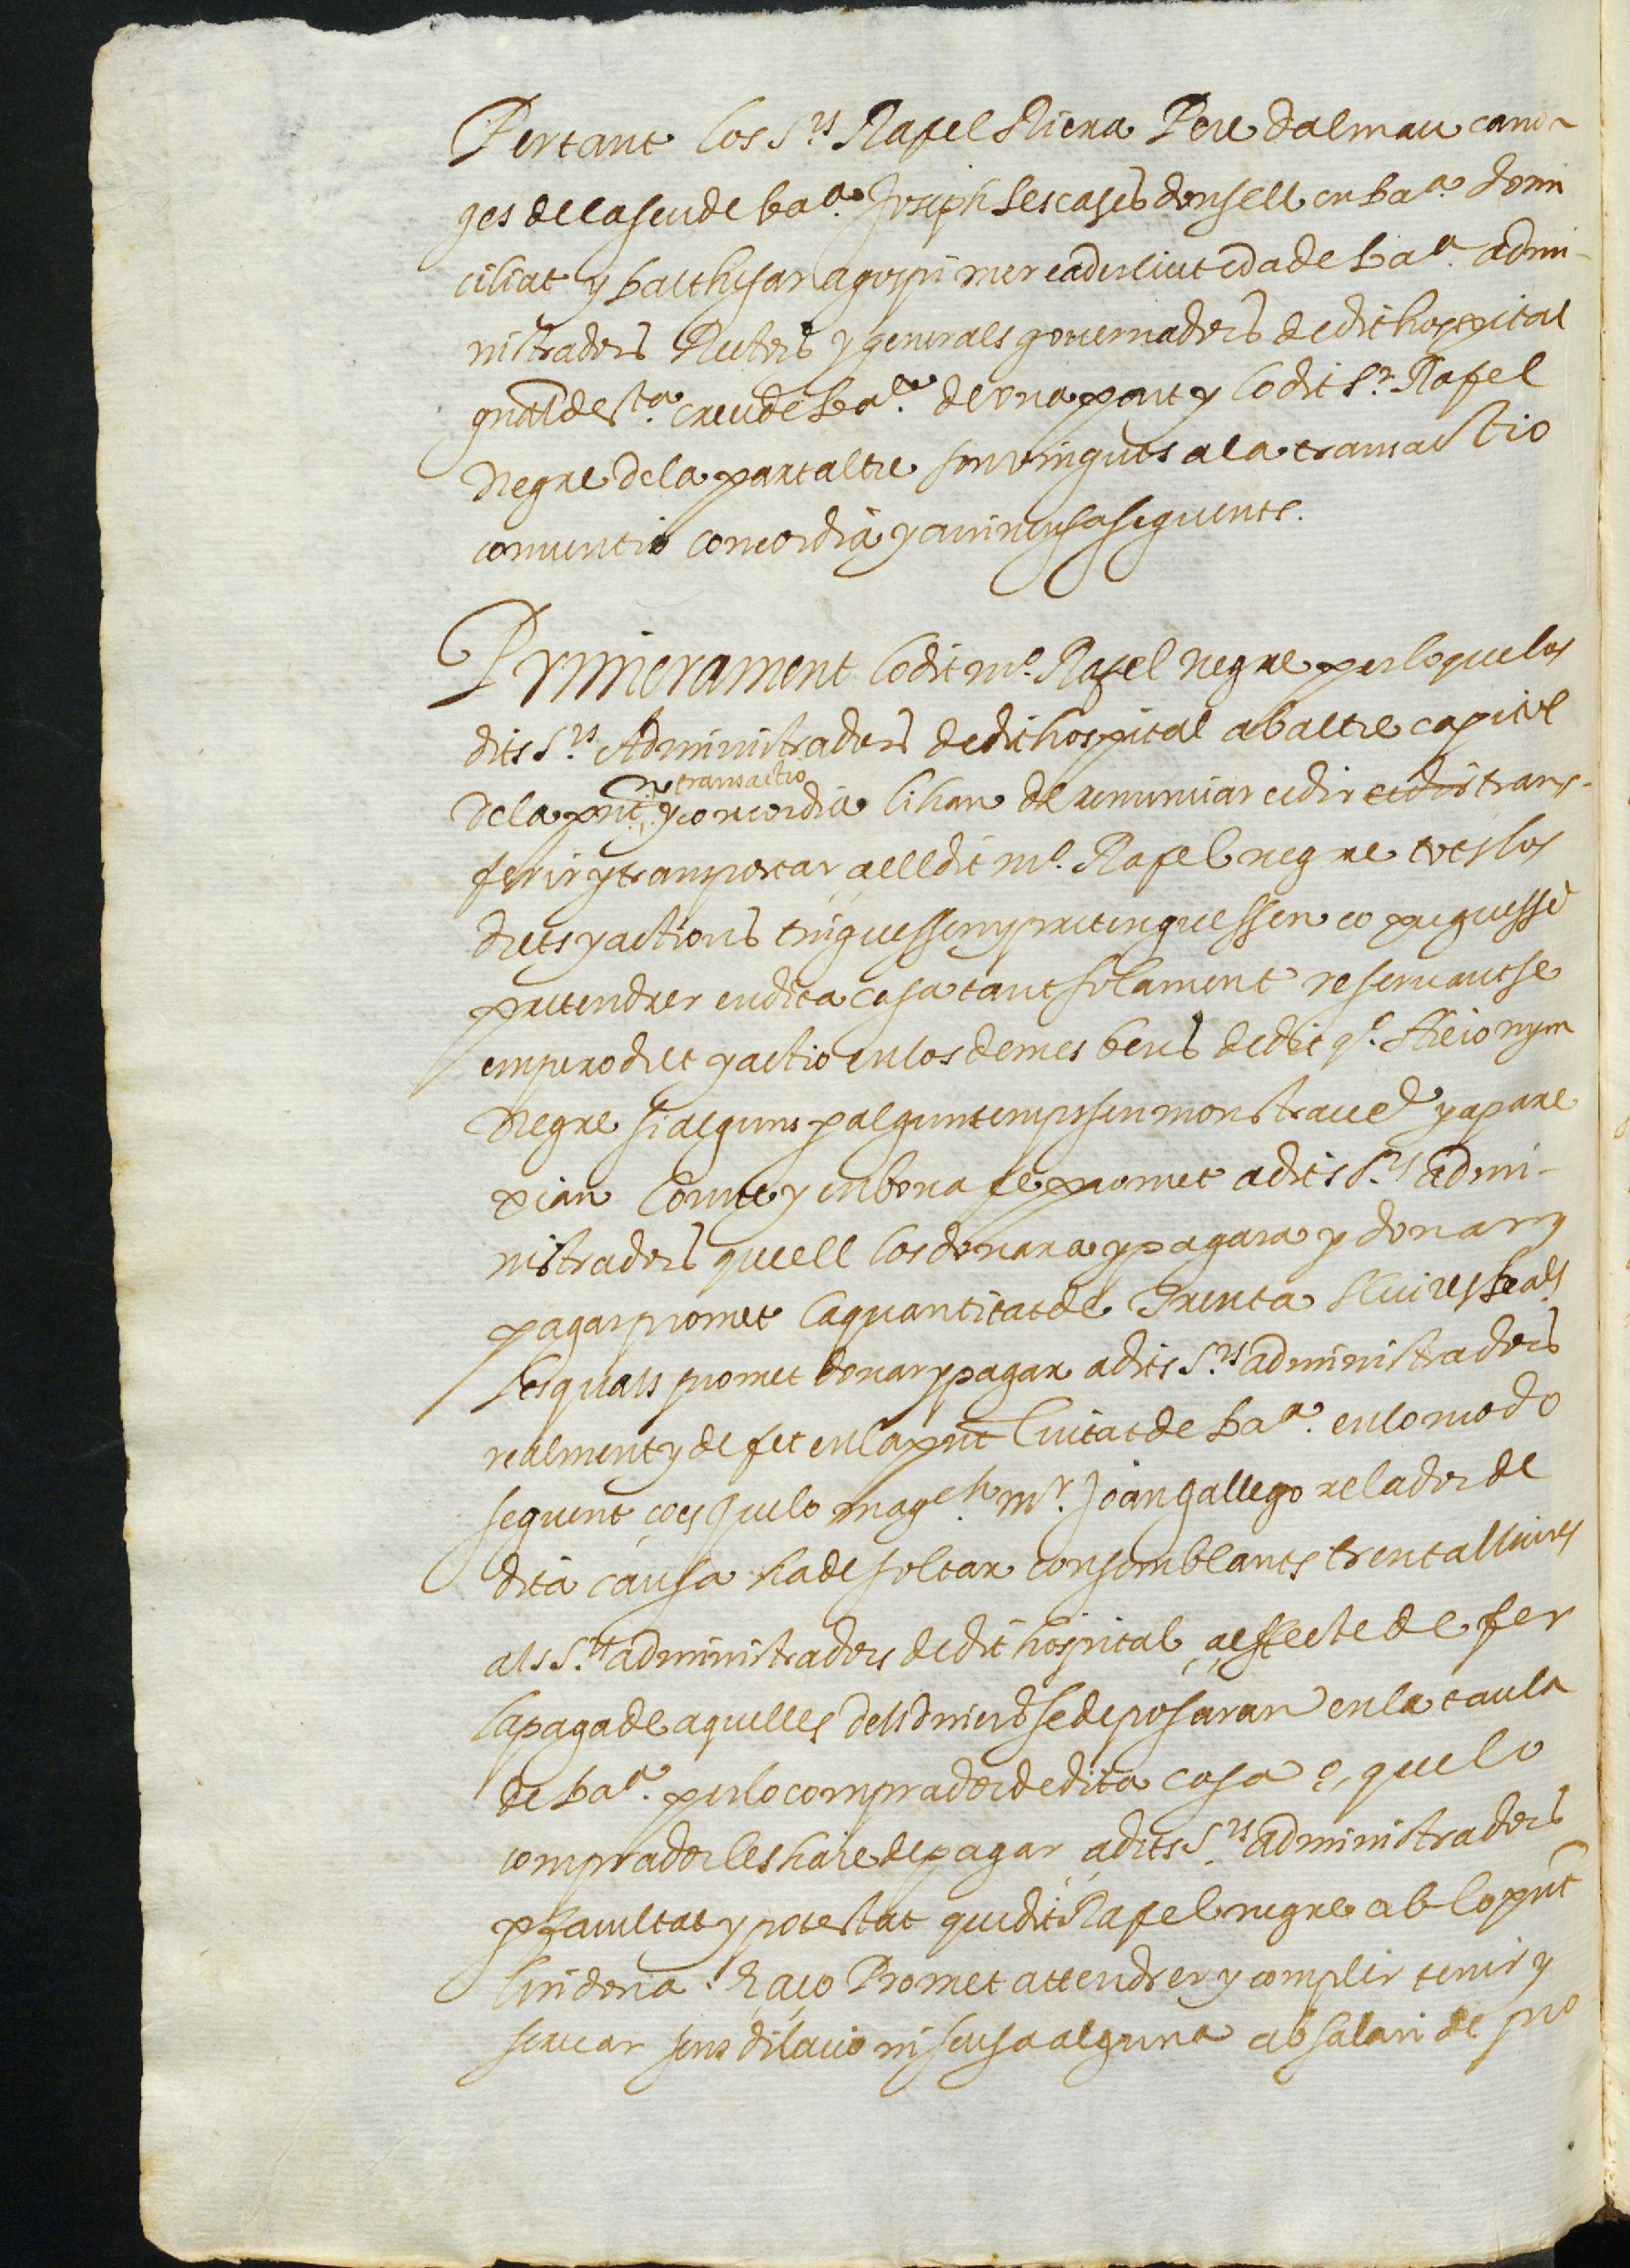 Pertant los S.rs Rafel Riera Pere dalmau cano-
ges de la seu de bar.a Joseph sescases donsell en bar.a domi
ciliat y balthesar agospi mercader ciutedà de bar.a admi-
nistradors Rectors y generals governadors de dit hospital
gn̄al de s.ta creu de bar.a de una part y lo dit S.r Rafel
negre de la part altre son vinguts a la transactio
conventio concordia y avinensa seguents.
Primerament lo dit m.o Rafel negre perlo que los
dits S.rs Administradors de dit hospital ab altre capitol
transactio
de la pn̄t y concordia li han de renunciar cedir cedir trans-
ferir y transportar a ell dit m.o Rafel negre tots los
drets y actions tinguessen y pretenguessen o poguessē
pretendrer en dita casa tant solament reservantse
empero dret y actio en los demes bens de dit q.o Hieronym
Negre si alguns p algun temps sen monstraue y apare
xian Conve y en bona fe promet a dits S.rs admi-
nistradors que ell los donara y pagara y donar y
pagar promet la quantitat de Trenta lliures bar.s
les quals promet donar y pagar a dits S.rs administradors
realment y de fet en la pn̄t Ciutat de bar.a en lo modo
seguent ço es que lo mag.ch m.r Joan gallego relador de
dita causa ha de soltar consemblants trenta lliures
als S.rs administradors de dit hospital a effecte de fer
la paga de aquelles dels diners se deposaran en la taula
de bar.a per lo comprador de dita casa o, que lo
comprador les haie de pagar a dits S.rs administradors
p facultat y potestat que dit Rafel negre ab lo pn̄t
lin dona. E aço Promet attendrer y complir tenir y
servar sens dilacio ni scusa alguna ab salari de pro